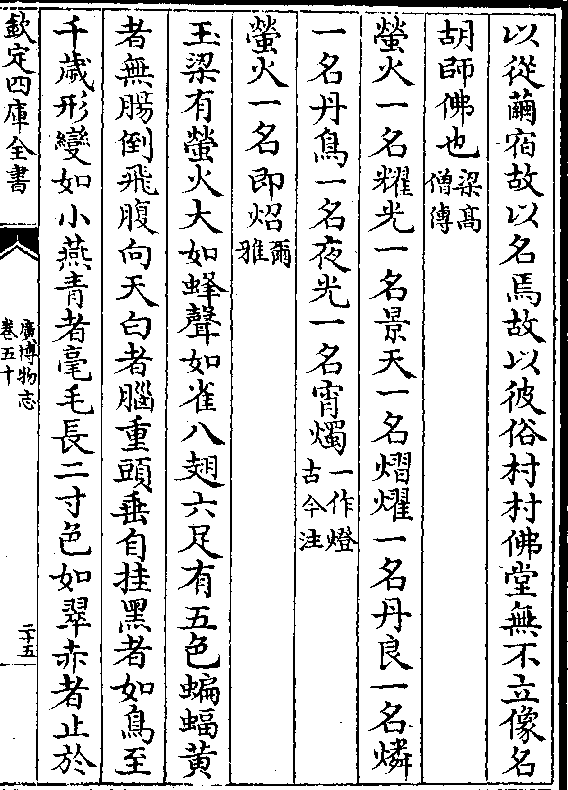 以從蠒宿故以名焉故以彼俗村村佛堂無不立像名
胡師佛也梁髙僧傳
螢火一名耀光一名景天一名熠燿一名丹良一名燐
一名丹鳥一名夜光一名宵燭一作燈古今注
螢火一名即炤爾雅
玉梁有螢火大如蜂聲如雀八翅六足有五色蝙蝠黄
者無腸倒飛腹向天白者腦重頭垂自挂黑者如鳥至
千歲形變如小燕青者毫毛長二寸色如翠赤者止於
欽定四庫全書
廣博物志
卷五十
二十五